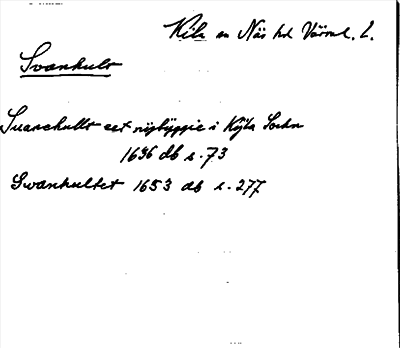 Kila sn Näs hd Värml. L.
Svankult
Suanehullt eet nijbÿggie i Kijla Sochn
1636 db s. 73
Swankultet 1653 db s. 277